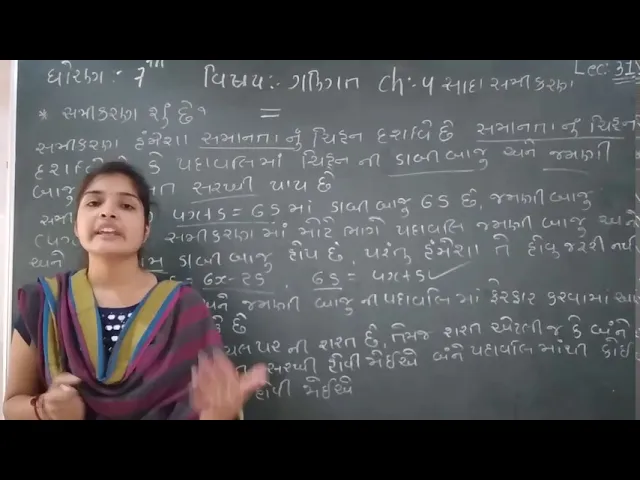 ધોરણ : 7th વિષય:- ગણિત ch:-4 સાદા સમીકરણ Lec: 31
* સમીકરણ શું છે?
સમીકરણ હંમેશા સમાનતાનું ચિહ્ન દર્શાવે છે સમાનતાનું ચિહ્ન
કે પદાવલિમાં ચિહ્ન ની ડાબી બાજુ અને જમણી
બાજુ સરખી થાય છે
4x+5 = 65 માં ડાબી બાજુ 65 છે, જમણી બાજુ
સમીકરણમાં મોટે ભાગે પદાવલિ જમણી બાજુ અને
અને ડાબી બાજુ હોય છે, પરંતુ હંમેશા તે હોવુ જરૂરી નથી
= 6x-25, 65 = 4x+5
અને જમણી બાજુ ની પદાવલિ માં ફેરફાર કરવામાં આ
કે છે
ચલ પર ની શરત છે, તેમજ શરત એટલી જ કે બંને
સરખી હોવી જોઈએ બંને પદાવલિ માંથી કોઈ
હોવી જોઈએ